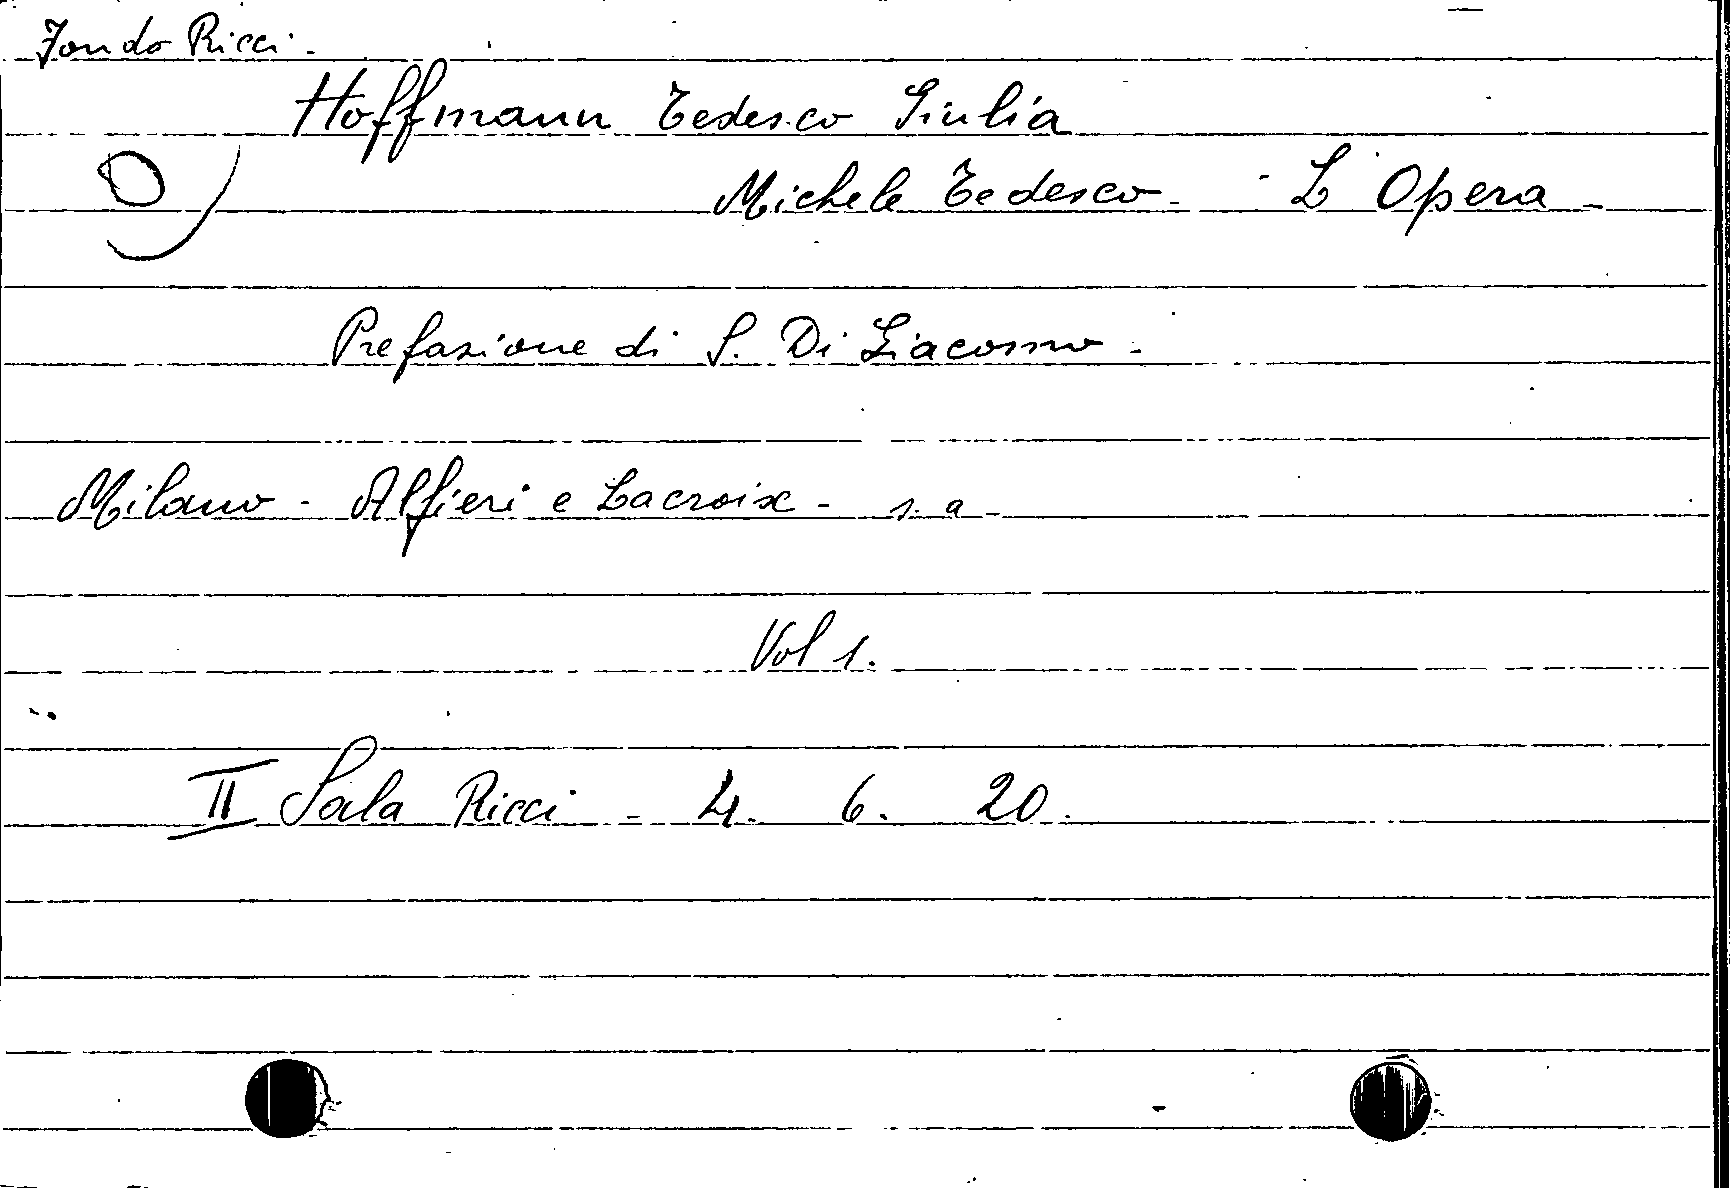 Fondo Ricci.
Hoffmann Tedesco Giulia
Michele Tedesco - L'Opera -
Prefazione di S. Di Giacomo -
Milano - Alfieri e Lacroix - s. a -
Vol 1.
II Sala Ricci - 4. 6. 20.